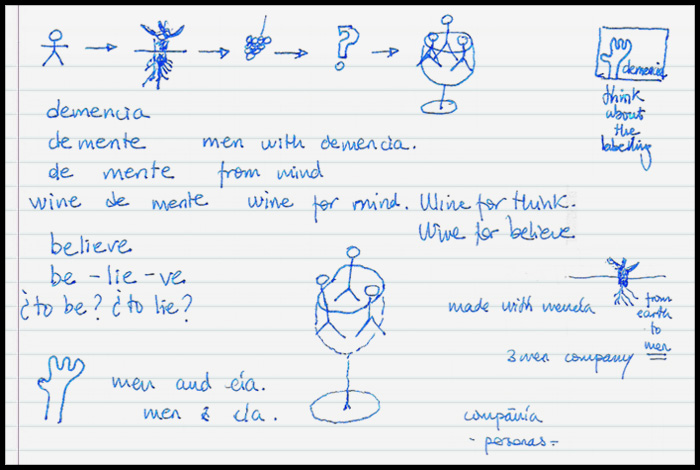 ?
demencia
think
about
the
labelling
demencia
de mente men with demencia.
de mente from mind
wine de mente wine for mind. Wine for think.
Wine for believe
believe
be - lie - ve
¿to be? ¿to lie?
made with mencía
from
earth
to
men
3 men company
men and cia.
men & cia.
compañia
- personas -